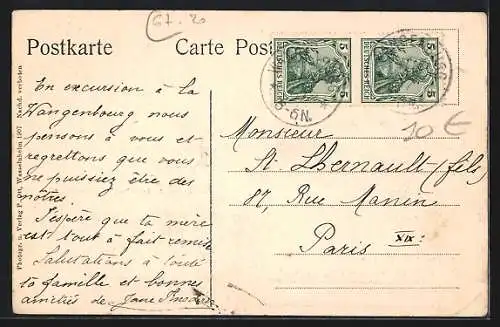 67.20
Postkarte
Carte Post
5 DEUTSCHES REICH 5
5 DEUTSCHES REICH 5
10€
En excursion à la
Wangenbourg nous
pensons à vous et
regrettons que vous
ne puissiez être des
nôtres.
J'espère que ta mère
est tout à fait remise
Salutations à toute
ta famille et bonnes
amitiés de Jane
Monsieur
St. Lhernault (fils)
87, Rue Manin
Paris
XIX:
Photogr. u. Verlag P. Ott, Wasselnheim 1907 Nachd. verboten